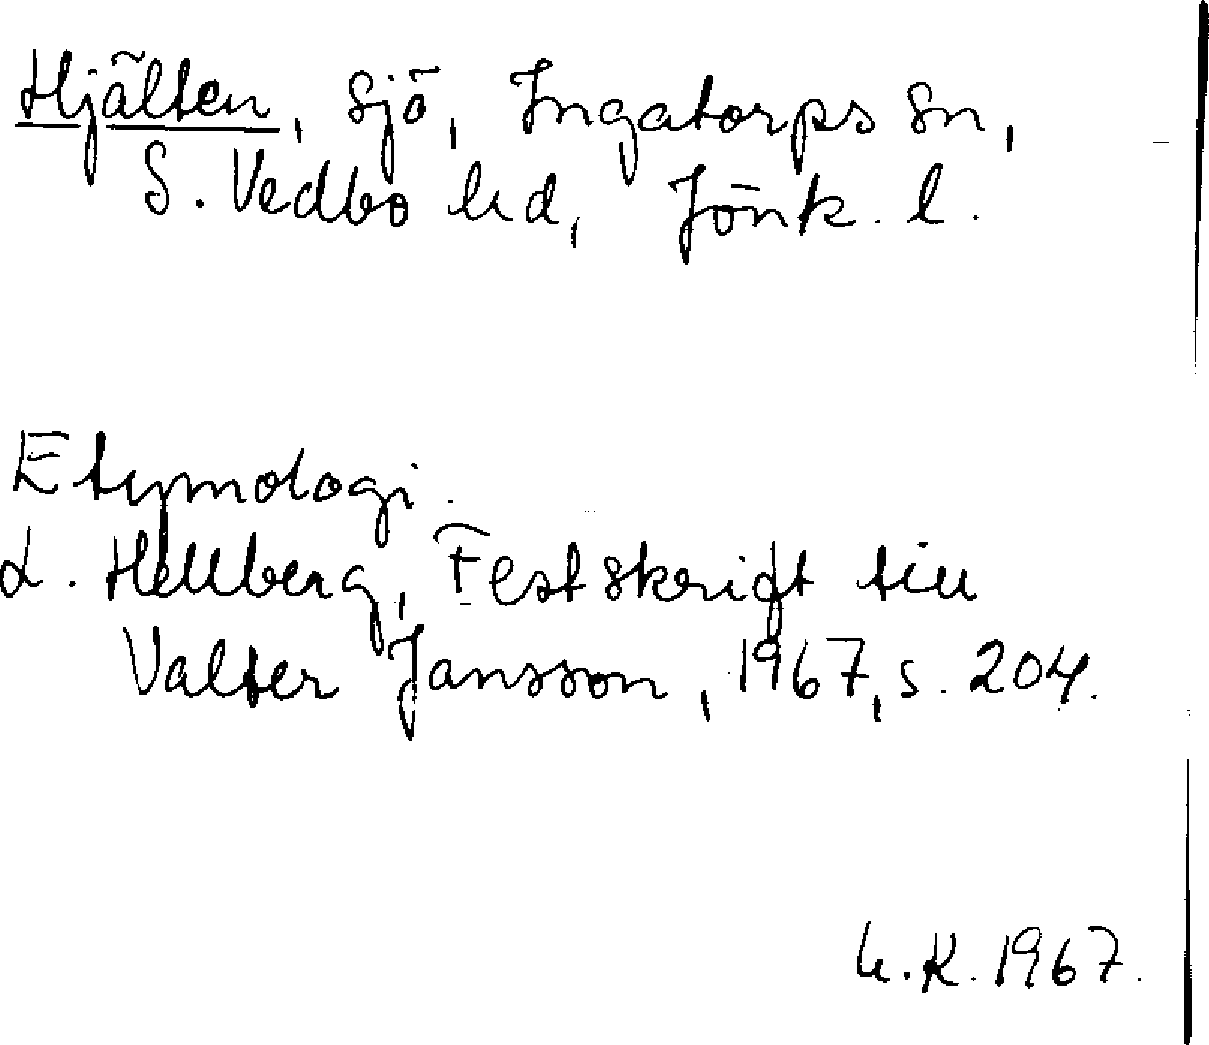 Hjälten, sjö, Ingatorps sn,
S. Vedbo hd, Jönk. l.
Etymologi.
L. Hellberg, Festskrift till
Valter Jansson, 1967, s. 204.
h.K. 1967.